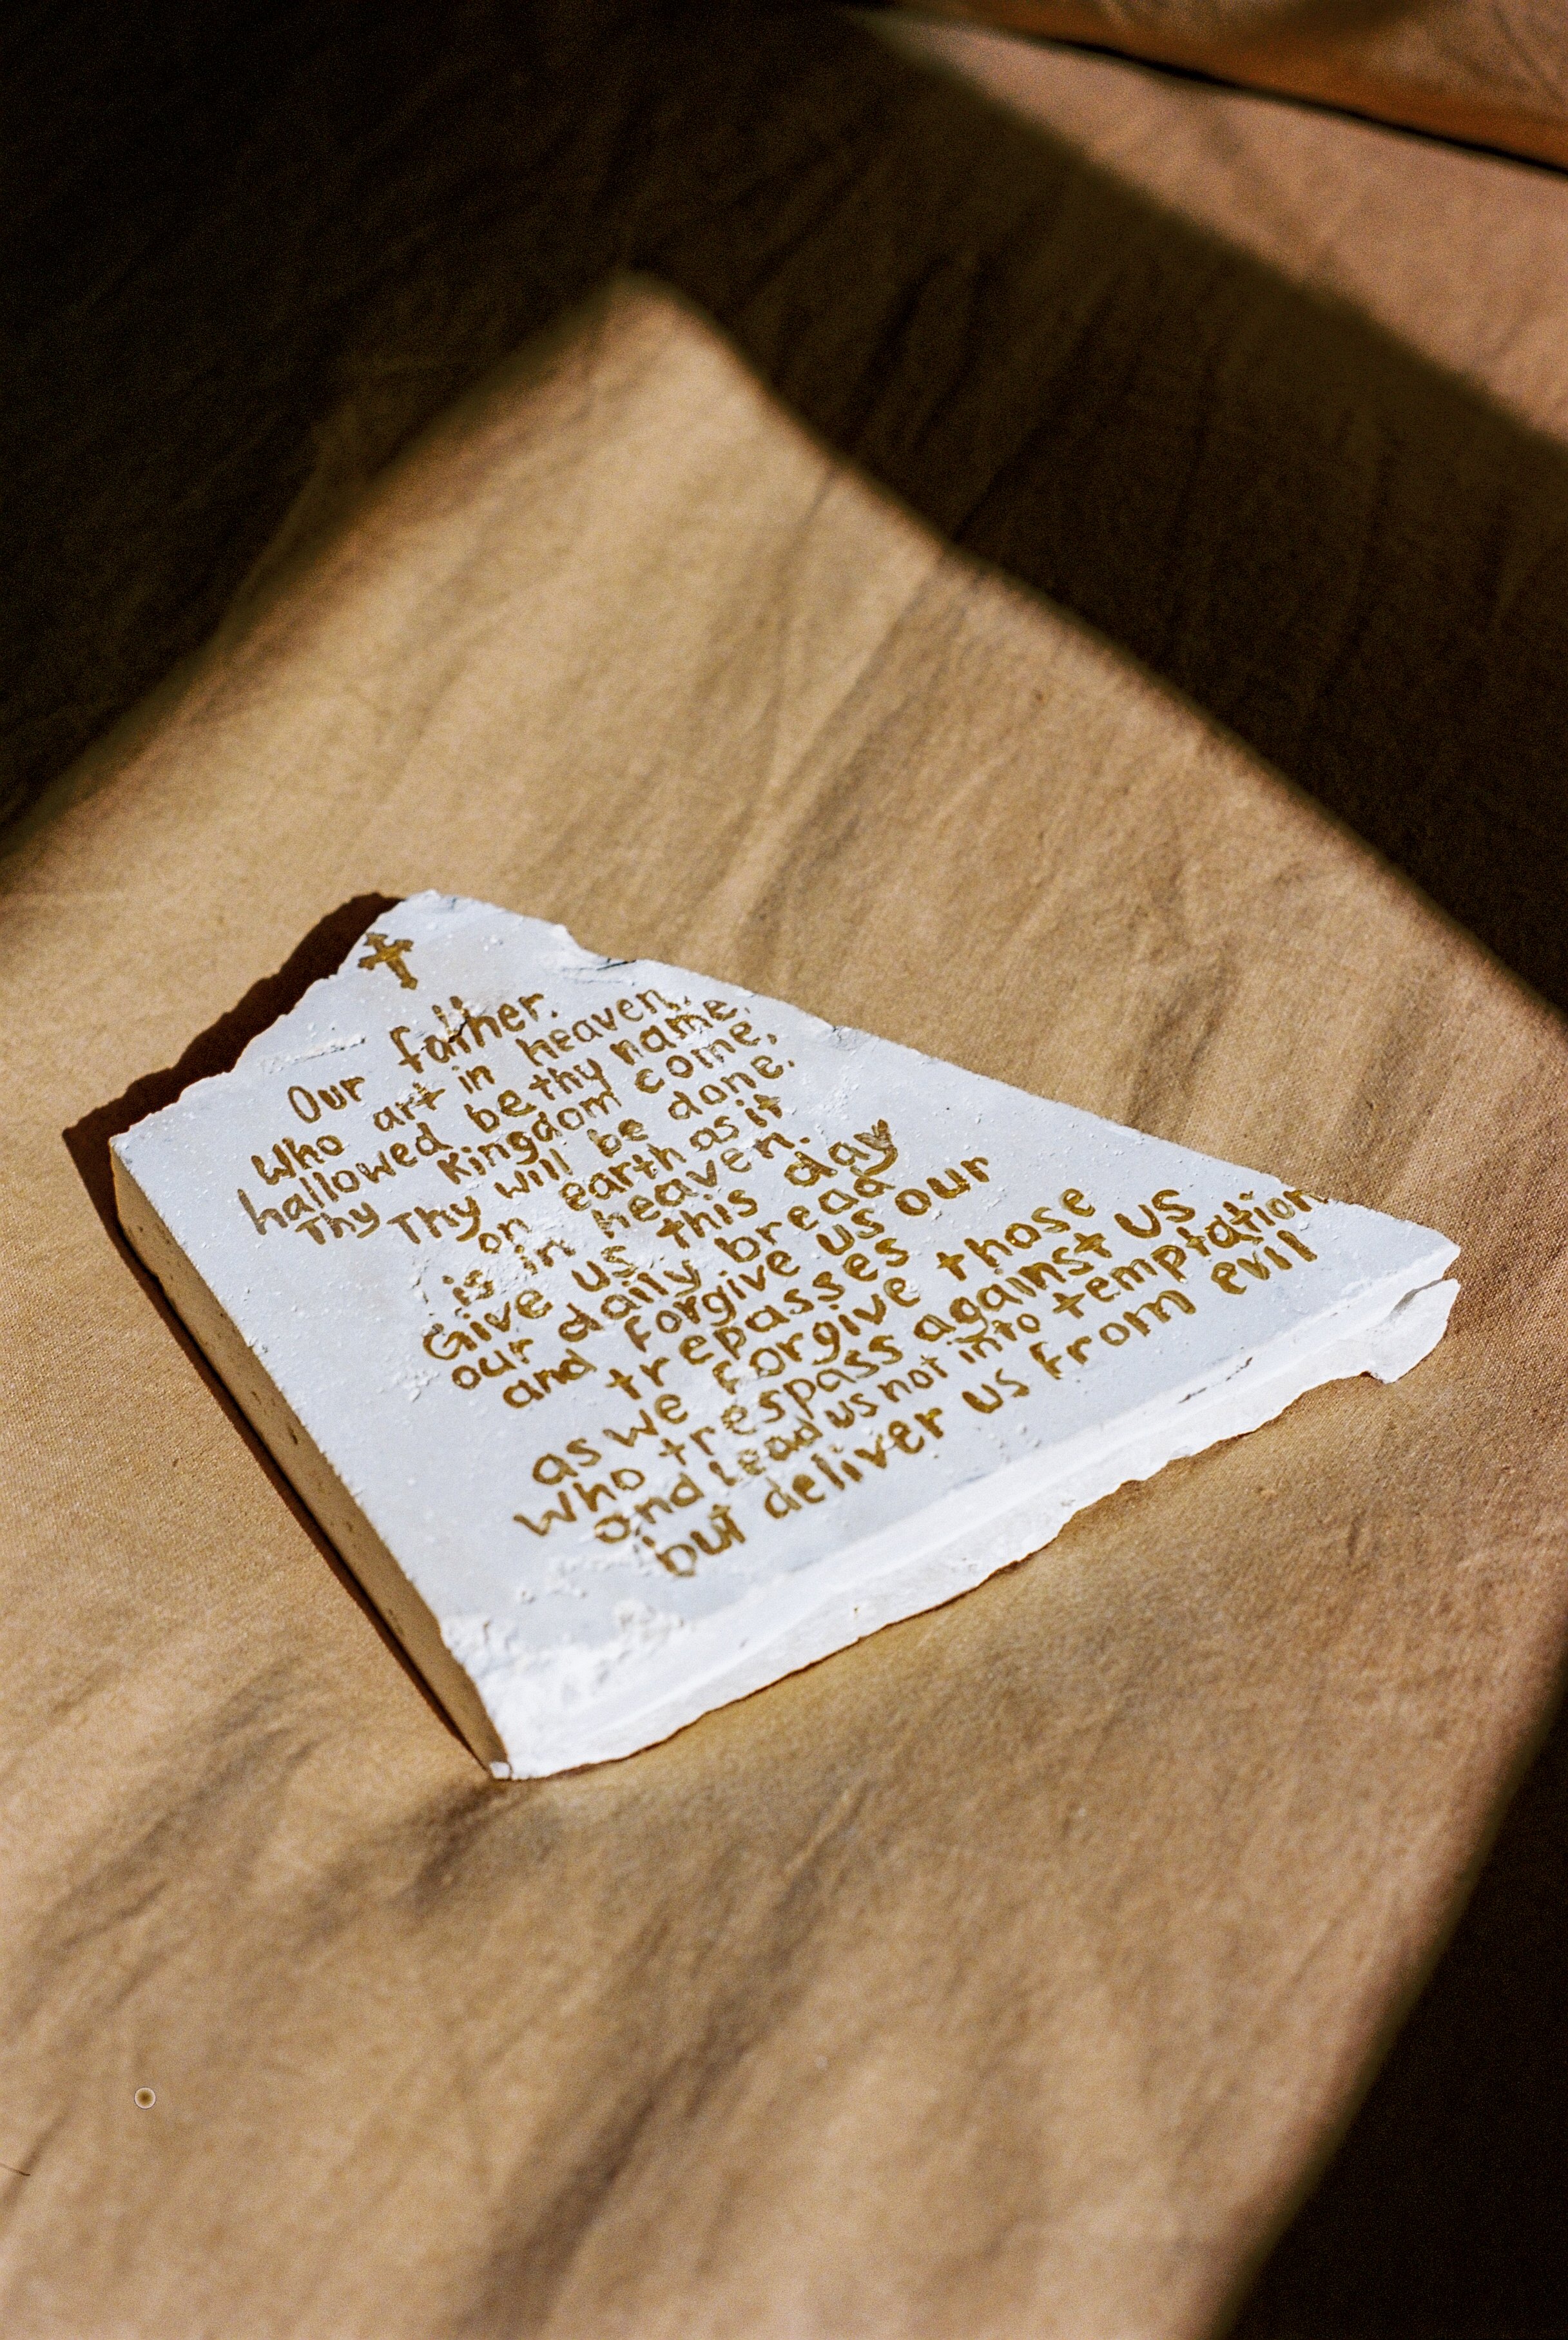 Our father.
Who art in heaven,
hallowed be thy name,
Thy Kingdom come,
Thy will be done.
on earth as it
is in heaven.
Give us this day
our daily bread
and forgive us our
trepasses
as we forgive those
who trespass against us
and lead us not into temptation
but deliver us from evil